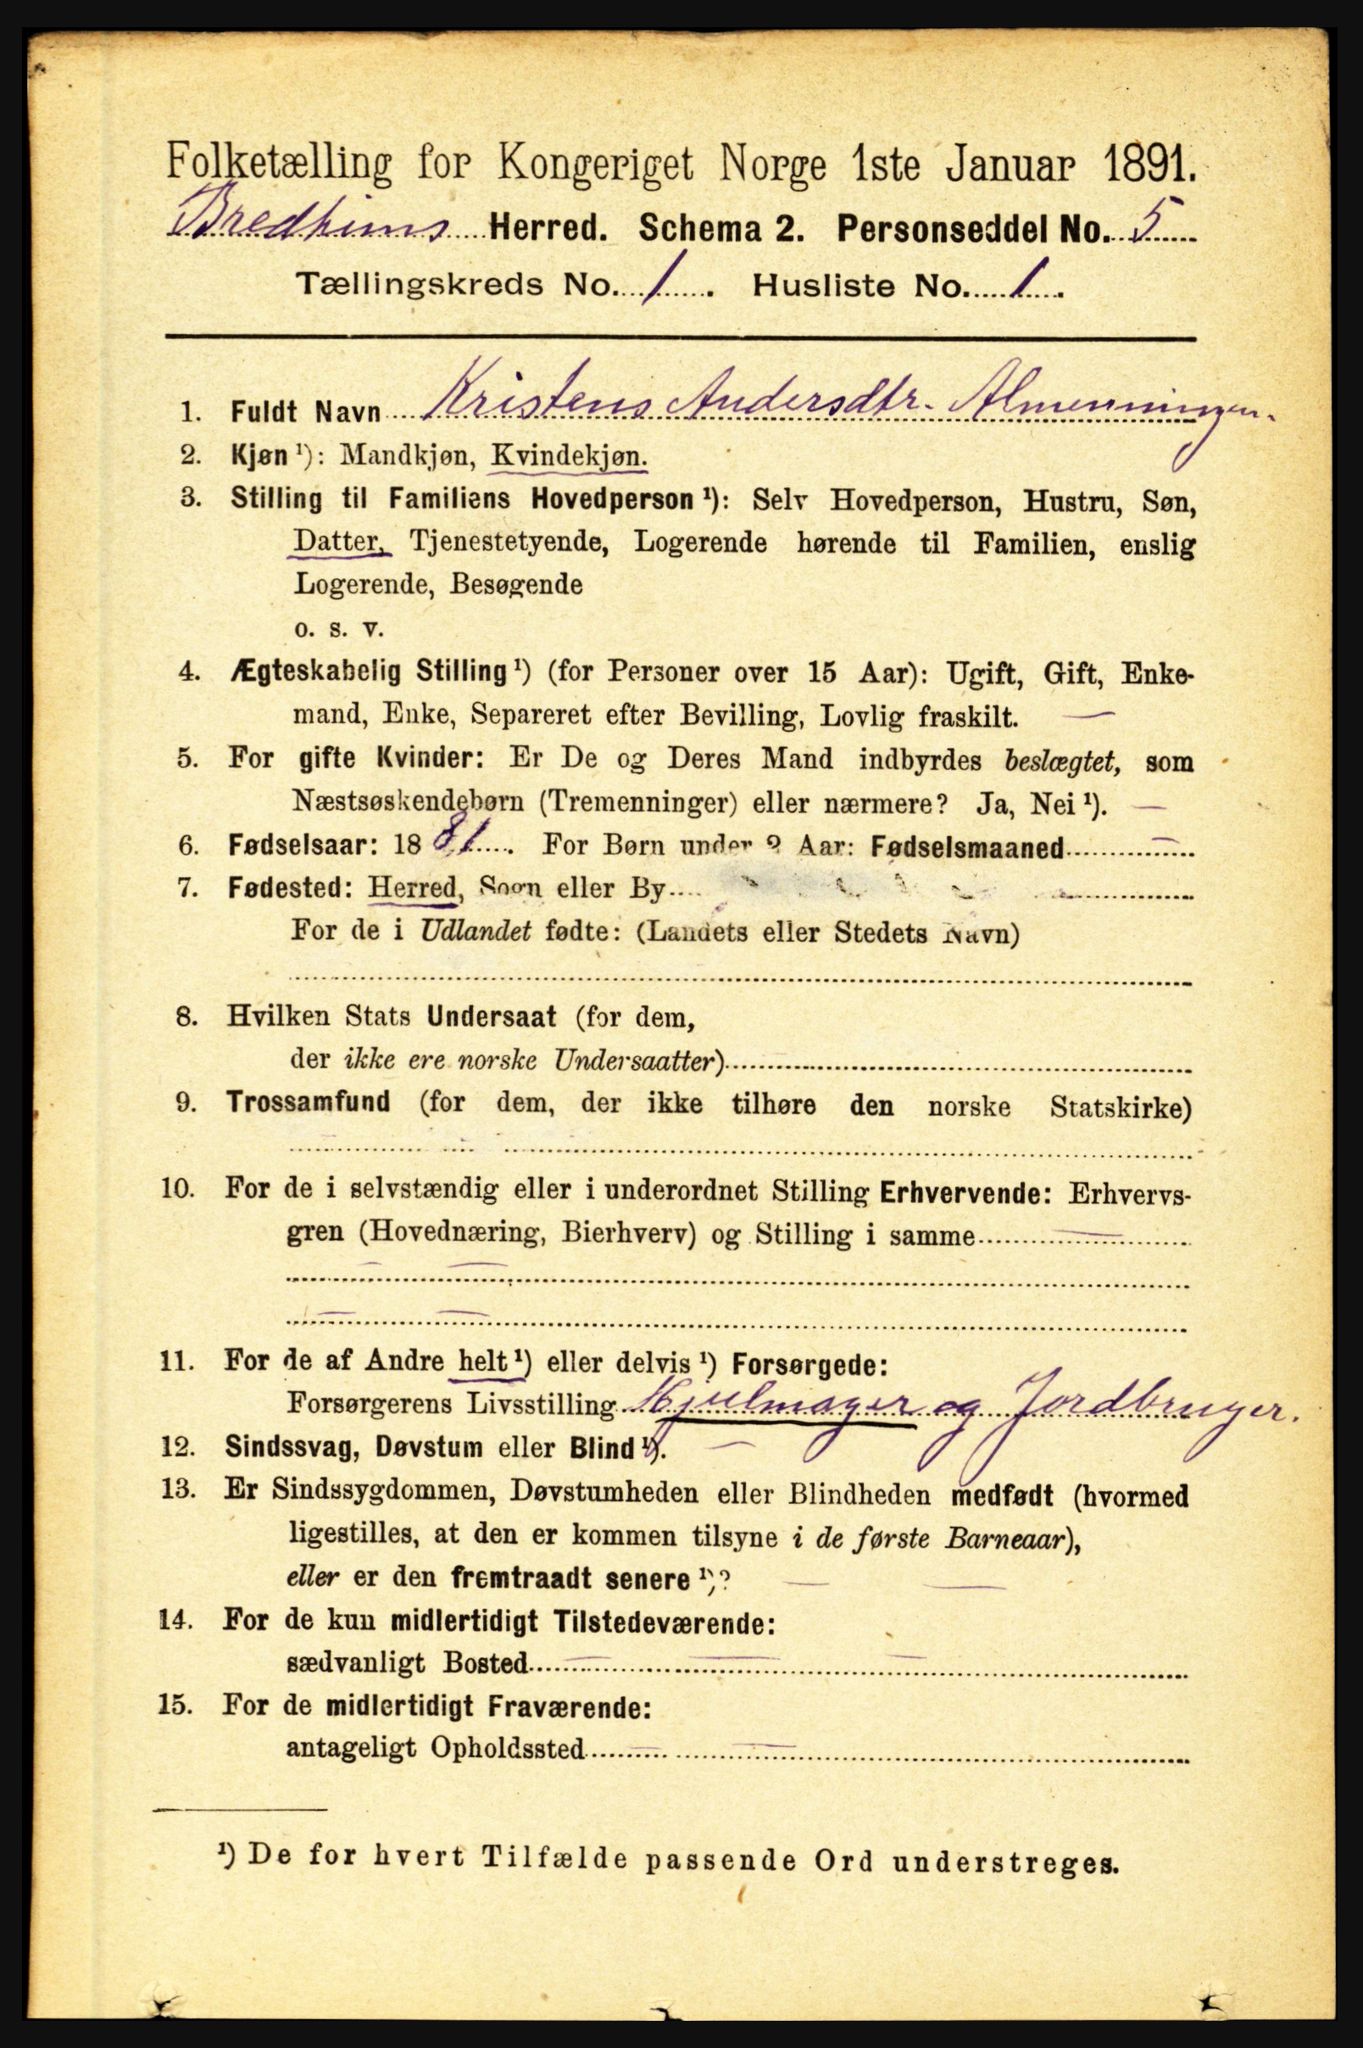 Folketælling for Kongeriget Norge 1ste Januar 1891.
Bredheims Herred. Schema 2. Personseddel No. 5
Tællingskreds No. 1. Husliste No. 1.
1. Fuldt Navn Kristens Andersdtr. Almenningen.
2. Kjøn ¹): Mandkjøn, Kvindekjøn.
3. Stilling til Familiens Hovedperson ¹): Selv Hovedperson, Hustru, Søn,
Datter, Tjenestetyende, Logerende hørende til Familien, enslig
Logerende, Besøgende
o. s. v.
4. Ægteskabelig Stilling ¹) (for Personer over 15 Aar): Ugift, Gift, Enke-
mand, Enke, Separeret efter Bevilling, Lovlig fraskilt. —
5. For gifte Kvinder: Er De og Deres Mand indbyrdes beslægtet, som
Næstsøskendebørn (Tremenninger) eller nærmere? Ja, Nei ¹). —
6. Fødselsaar: 1881. For Børn under 2 Aar: Fødselsmaaned —
7. Fødested: Herred, Sogn eller By
For de i Udlandet fødte: (Landets eller Stedets Navn)
8. Hvilken Stats Undersaat (for dem,
der ikke ere norske Undersaatter)
9. Trossamfund (for dem, der ikke tilhøre den norske Statskirke)
10. For de i selvstændig eller i underordnet Stilling Erhvervende: Erhvervs-
gren (Hovednæring, Bierhverv) og Stilling i samme —
— —
— —
11. For de af Andre helt ¹) eller delvis ¹) Forsørgede:
Forsørgerens Livsstilling Hjulmager og Jordbruger.
12. Sindssvag, Døvstum eller Blind ¹). —
13. Er Sindssygdommen, Døvstumheden eller Blindheden medfødt (hvormed
ligestilles, at den er kommen tilsyne i de første Barneaar),
eller er den fremtraadt senere ¹)? — —
14. For de kun midlertidigt Tilstedeværende:
sædvanligt Bosted — — —
15. For de midlertidigt Fraværende:
antageligt Opholdssted — —
¹) De for hvert Tilfælde passende Ord understreges.